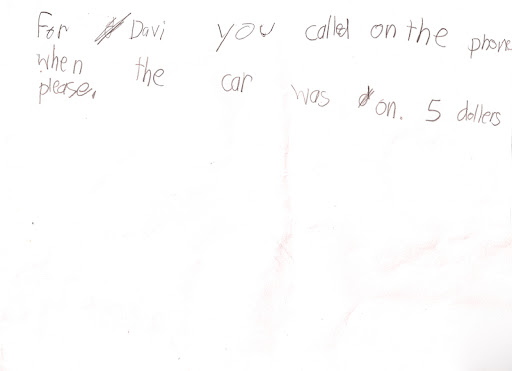 For Davi you called on the phone
when the car was on. 5 dollers
please.